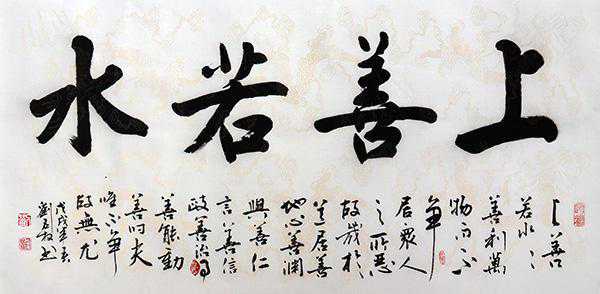 上善若水
上善
若水〻
善利萬
物而不
爭
居眾人
之所惡
故幾於
道居善
地心善淵
與善仁
言善信
政善治事
善能動
善時夫
唯不爭
故無尤
戊戌年春
劉 書